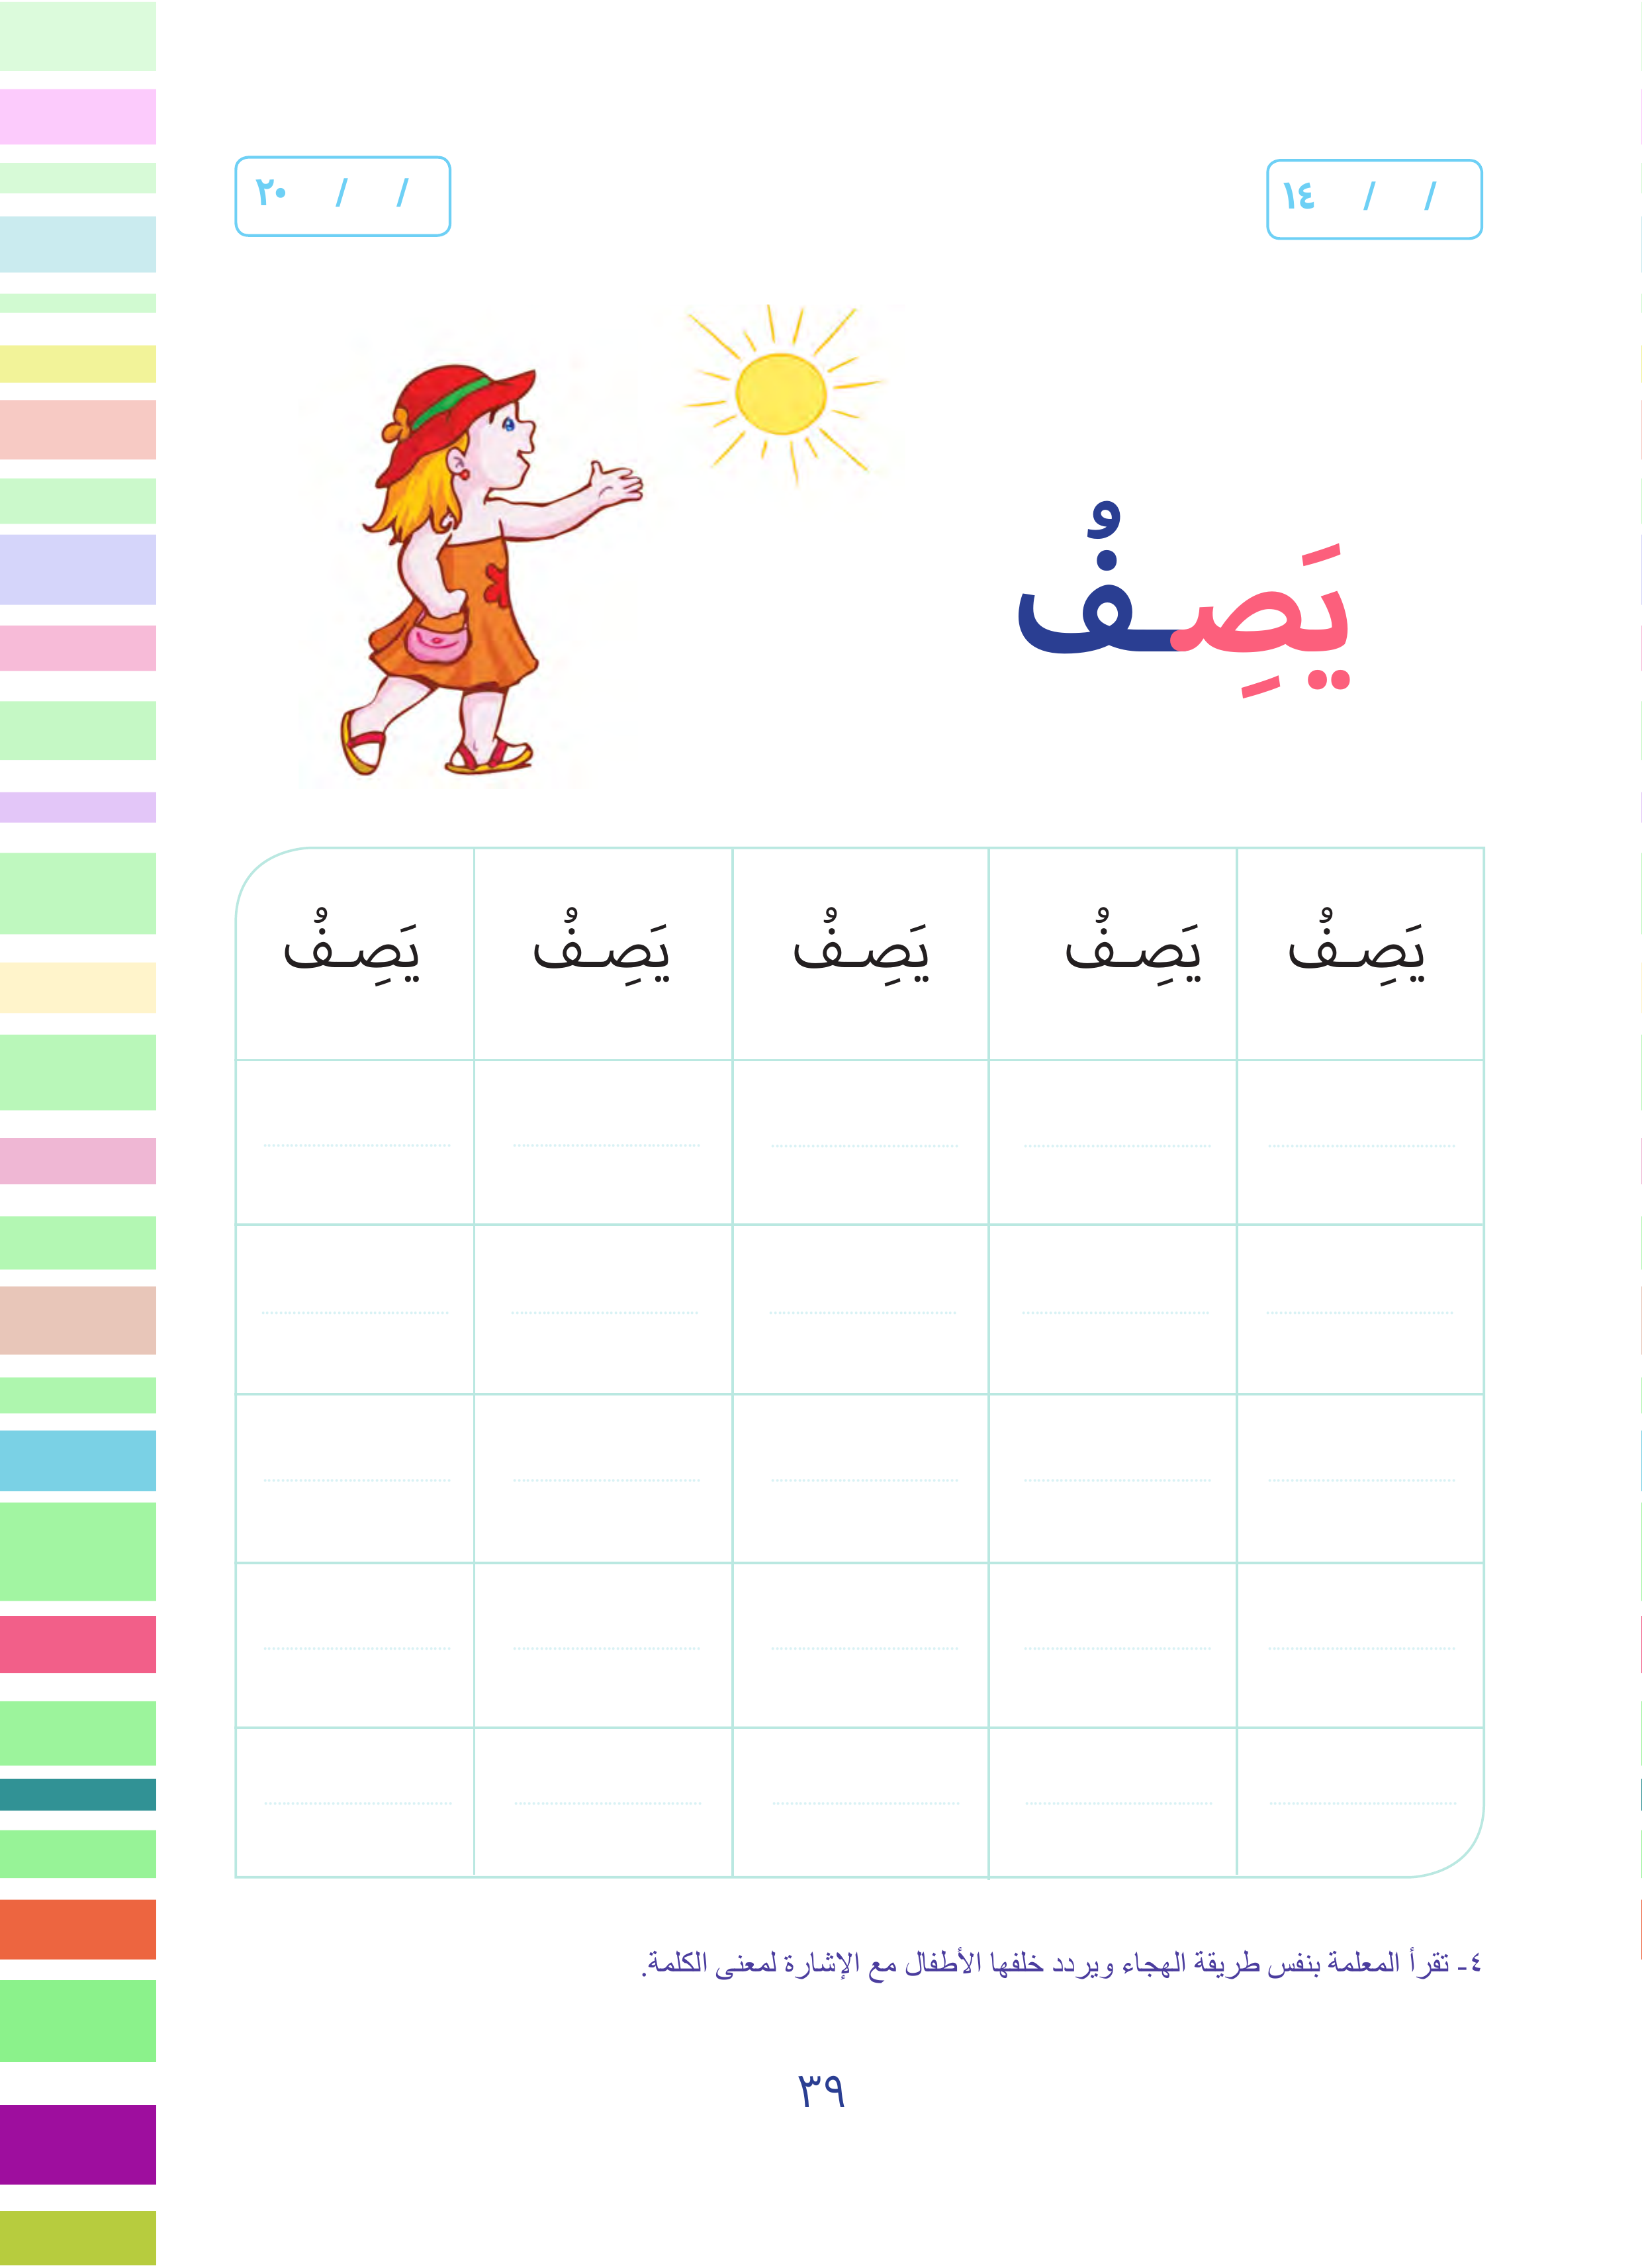 / / ١٤
/ / ٢٠
يَصِفُ
يَصِفُ يَصِفُ يَصِفُ يَصِفُ يَصِفُ
٤- تقرأ المعلمة بنفس طريقة الهجاء ويردد خلفها الأطفال مع الإشارة لمعنى الكلمة.
٣٩